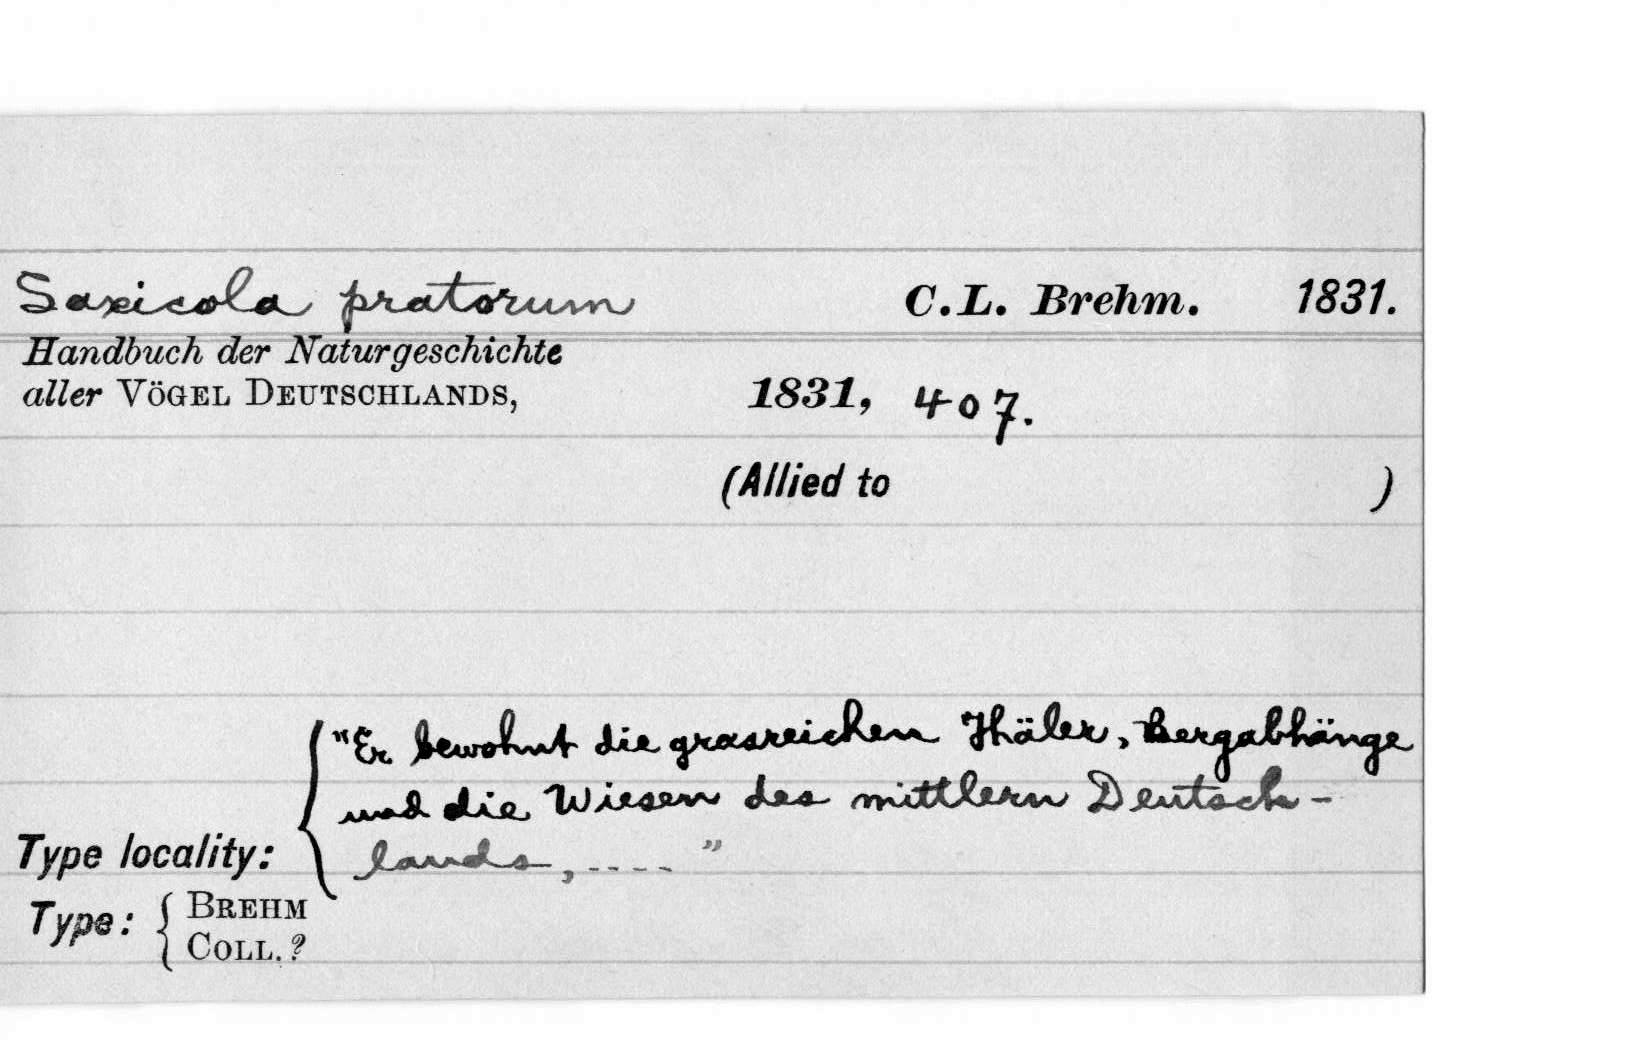 Saxicola pratorum C.L. Brehm. 1831.
Handbuch der Naturgeschichte
aller VÖGEL DEUTSCHLANDS, 1831, 407.
(Allied to )
"Er bewohnt die grasreichen Thäler, Bergabhänge
und die Wiesen des mittlern Deutsch-
Type locality: lands, ----"
Type: BREHM
COLL.?